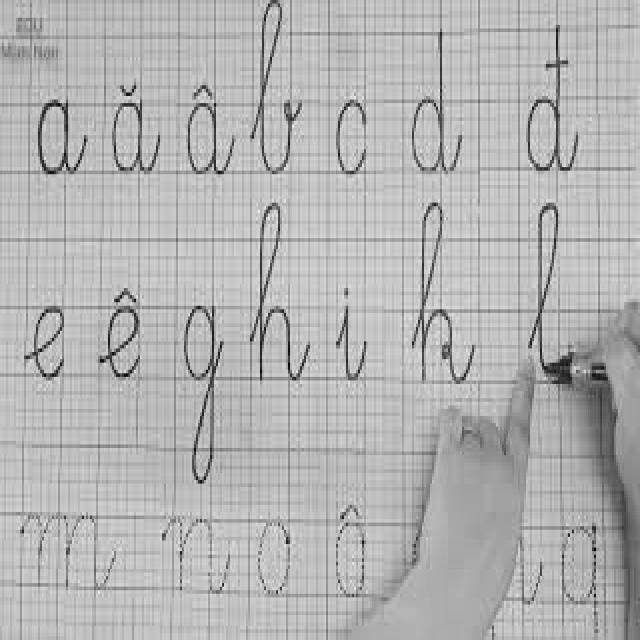 a ă â b c d đ
e ê g h i k l
m n o ô